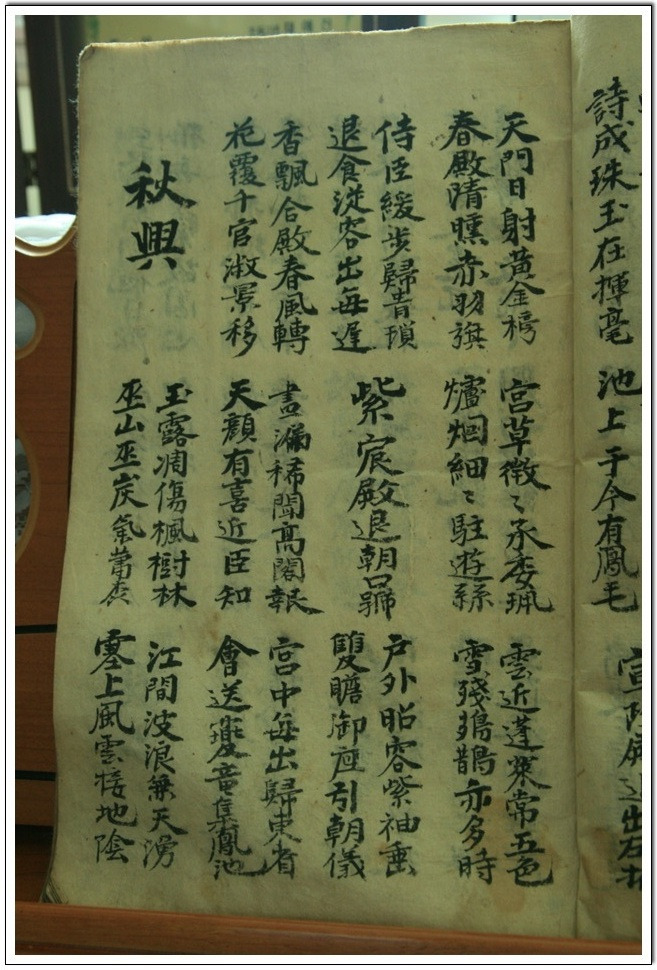 詩成珠玉在揮毫
池上于今有鳳毛
宣政殿退出左掖
天門日射黃金榜
春殿隋曛赤羽旗
宮草徵〻承委珮
爐烟細〻駐遊絲
雲近蓬萊常五色
雪殘鳷鵲亦多時
侍臣緩步歸青瑣
退食從容出每遲
紫宸殿退朝口號
戶外昭容紫袖垂
雙瞻御座引朝儀
香飄合殿春風轉
花覆千官淑景移
晝漏稀聞高閣報
天顏有喜近臣知
宮中每出歸東省
會送夔竜集鳳池
秋興
玉露凋傷楓樹林
巫山巫峽氣蕭森
江間波浪兼天湧
塞上風雲接地陰